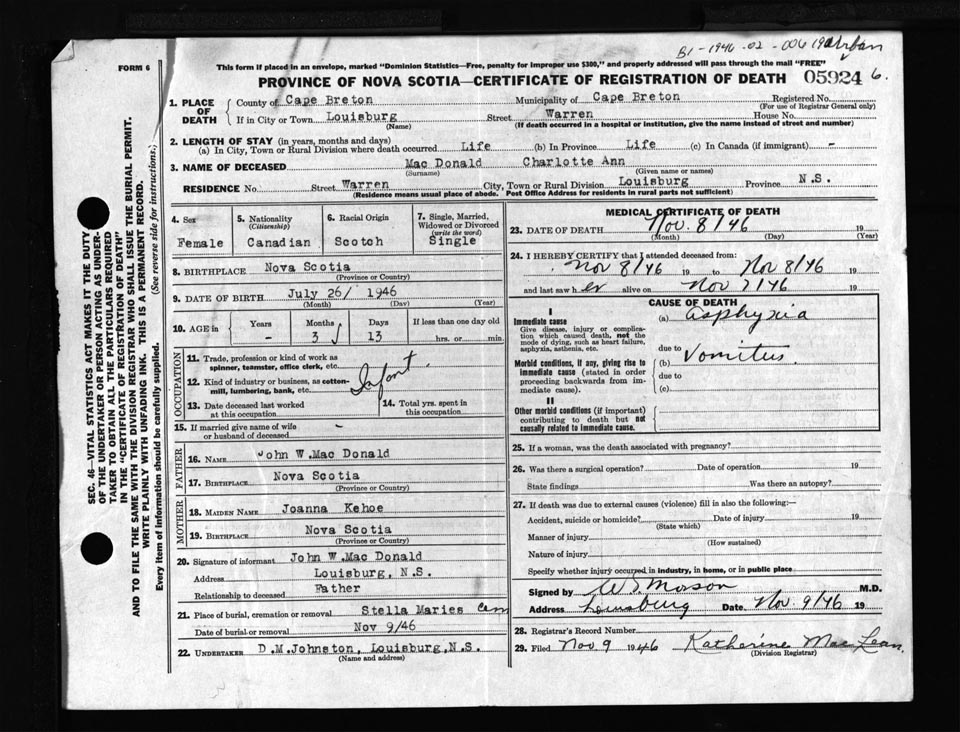 B1-1946-02-006192 Urban
FORM 6
This form if placed in an envelope, marked "Dominion Statistics—Free, penalty for improper use $300," and properly addressed will pass through the mail "FREE"
PROVINCE OF NOVA SCOTIA—CERTIFICATE OF REGISTRATION OF DEATH 05924 6.
SEC. 46—VITAL STATISTICS ACT MAKES IT THE DUTY
OF THE UNDERTAKER OR PERSON ACTING AS UNDER-
TAKER TO OBTAIN ALL THE PARTICULARS REQUIRED
IN THE "CERTIFICATE OF REGISTRATION OF DEATH"
AND TO FILE THE SAME WITH THE DIVISION REGISTRAR WHO SHALL ISSUE THE BURIAL PERMIT.
WRITE PLAINLY WITH UNFADING INK. THIS IS A PERMANENT RECORD.
Every item of information should be carefully supplied. (See reverse side for instructions.)
1. PLACE OF DEATH County of Cape Breton Municipality of Cape Breton Registered No.
(For use of Registrar General only)
If in City or Town Louisburg Street Warren House No.
(Name) (If death occurred in a hospital or institution, give the name instead of street and number)
2. LENGTH OF STAY (in years, months and days)
(a) In City, Town or Rural Division where death occurred Life (b) In Province Life (c) In Canada (if immigrant) -
3. NAME OF DECEASED Mac Donald Charlotte Ann
(Surname) (Given name or names)
RESIDENCE No. Street Warren City, Town or Rural Division Louisburg Province N.S.
(Residence means usual place of abode. Post Office Address for residents in rural parts not sufficient)
4. Sex Female
5. Nationality (Citizenship) Canadian
6. Racial Origin Scotch
7. Single, Married, Widowed or Divorced (write the word) Single
8. BIRTHPLACE Nova Scotia
(Province or Country)
9. DATE OF BIRTH July 26/ 1946
(Month) (Day) (Year)
10. AGE in Years Months Days If less than one day old
- 3 13 hrs. or min.
OCCUPATION
11. Trade, profession or kind of work as
spinner, teamster, office clerk, etc.
Infant
12. Kind of industry or business, as cotton-
mill, lumbering, bank, etc.
13. Date deceased last worked
at this occupation
14. Total yrs. spent in
this occupation
15. If married give name of wife
or husband of deceased -
FATHER
16. NAME John W. Mac Donald
17. BIRTHPLACE Nova Scotia
(Province or Country)
MOTHER
18. MAIDEN NAME Joanna Kehoe
19. BIRTHPLACE Nova Scotia
(Province or Country)
20. Signature of informant John W. Mac Donald
Address Louisburg, N.S.
Relationship to deceased Father
21. Place of burial, cremation or removal Stella Maries Cem
Date of burial or removal Nov 9/46
22. UNDERTAKER D.M.Johnston, Louisburg,N.S.
(Name and address)
MEDICAL CERTIFICATE OF DEATH
23. DATE OF DEATH Nov. 8/46 19
(Month) (Day) (Year)
24. I HEREBY CERTIFY that I attended deceased from:
Nov 8/46 19 to Nov 8/46 19
and last saw her alive on Nov 7/46 19
CAUSE OF DEATH
I
Immediate cause (a) Asphyxia
Give disease, injury or complica-
tion which caused death, not the
mode of dying, such as heart failure,
asphyxia, asthenia, etc.
due to
Morbid conditions, if any, giving rise to (b) Vomitus.
immediate cause (stated in order
proceeding backwards from im-
mediate cause).
due to
(c)
II
Other morbid conditions (if important)
contributing to death but not
causally related to immediate cause.
25. If a woman, was the death associated with pregnancy?
26. Was there a surgical operation? Date of operation 19
State findings Was there an autopsy?
27. If death was due to external causes (violence) fill in also the following:—
Accident, suicide or homicide? Date of injury 19
(State which)
Manner of injury
(How sustained)
Nature of injury
Specify whether injury occurred in industry, in home, or in public place
Signed by M.D.
Address Louisburg Date Nov. 9/46 19
28. Registrar's Record Number
29. Filed Nov 9 1946 Katherine MacLean.
(Division Registrar)